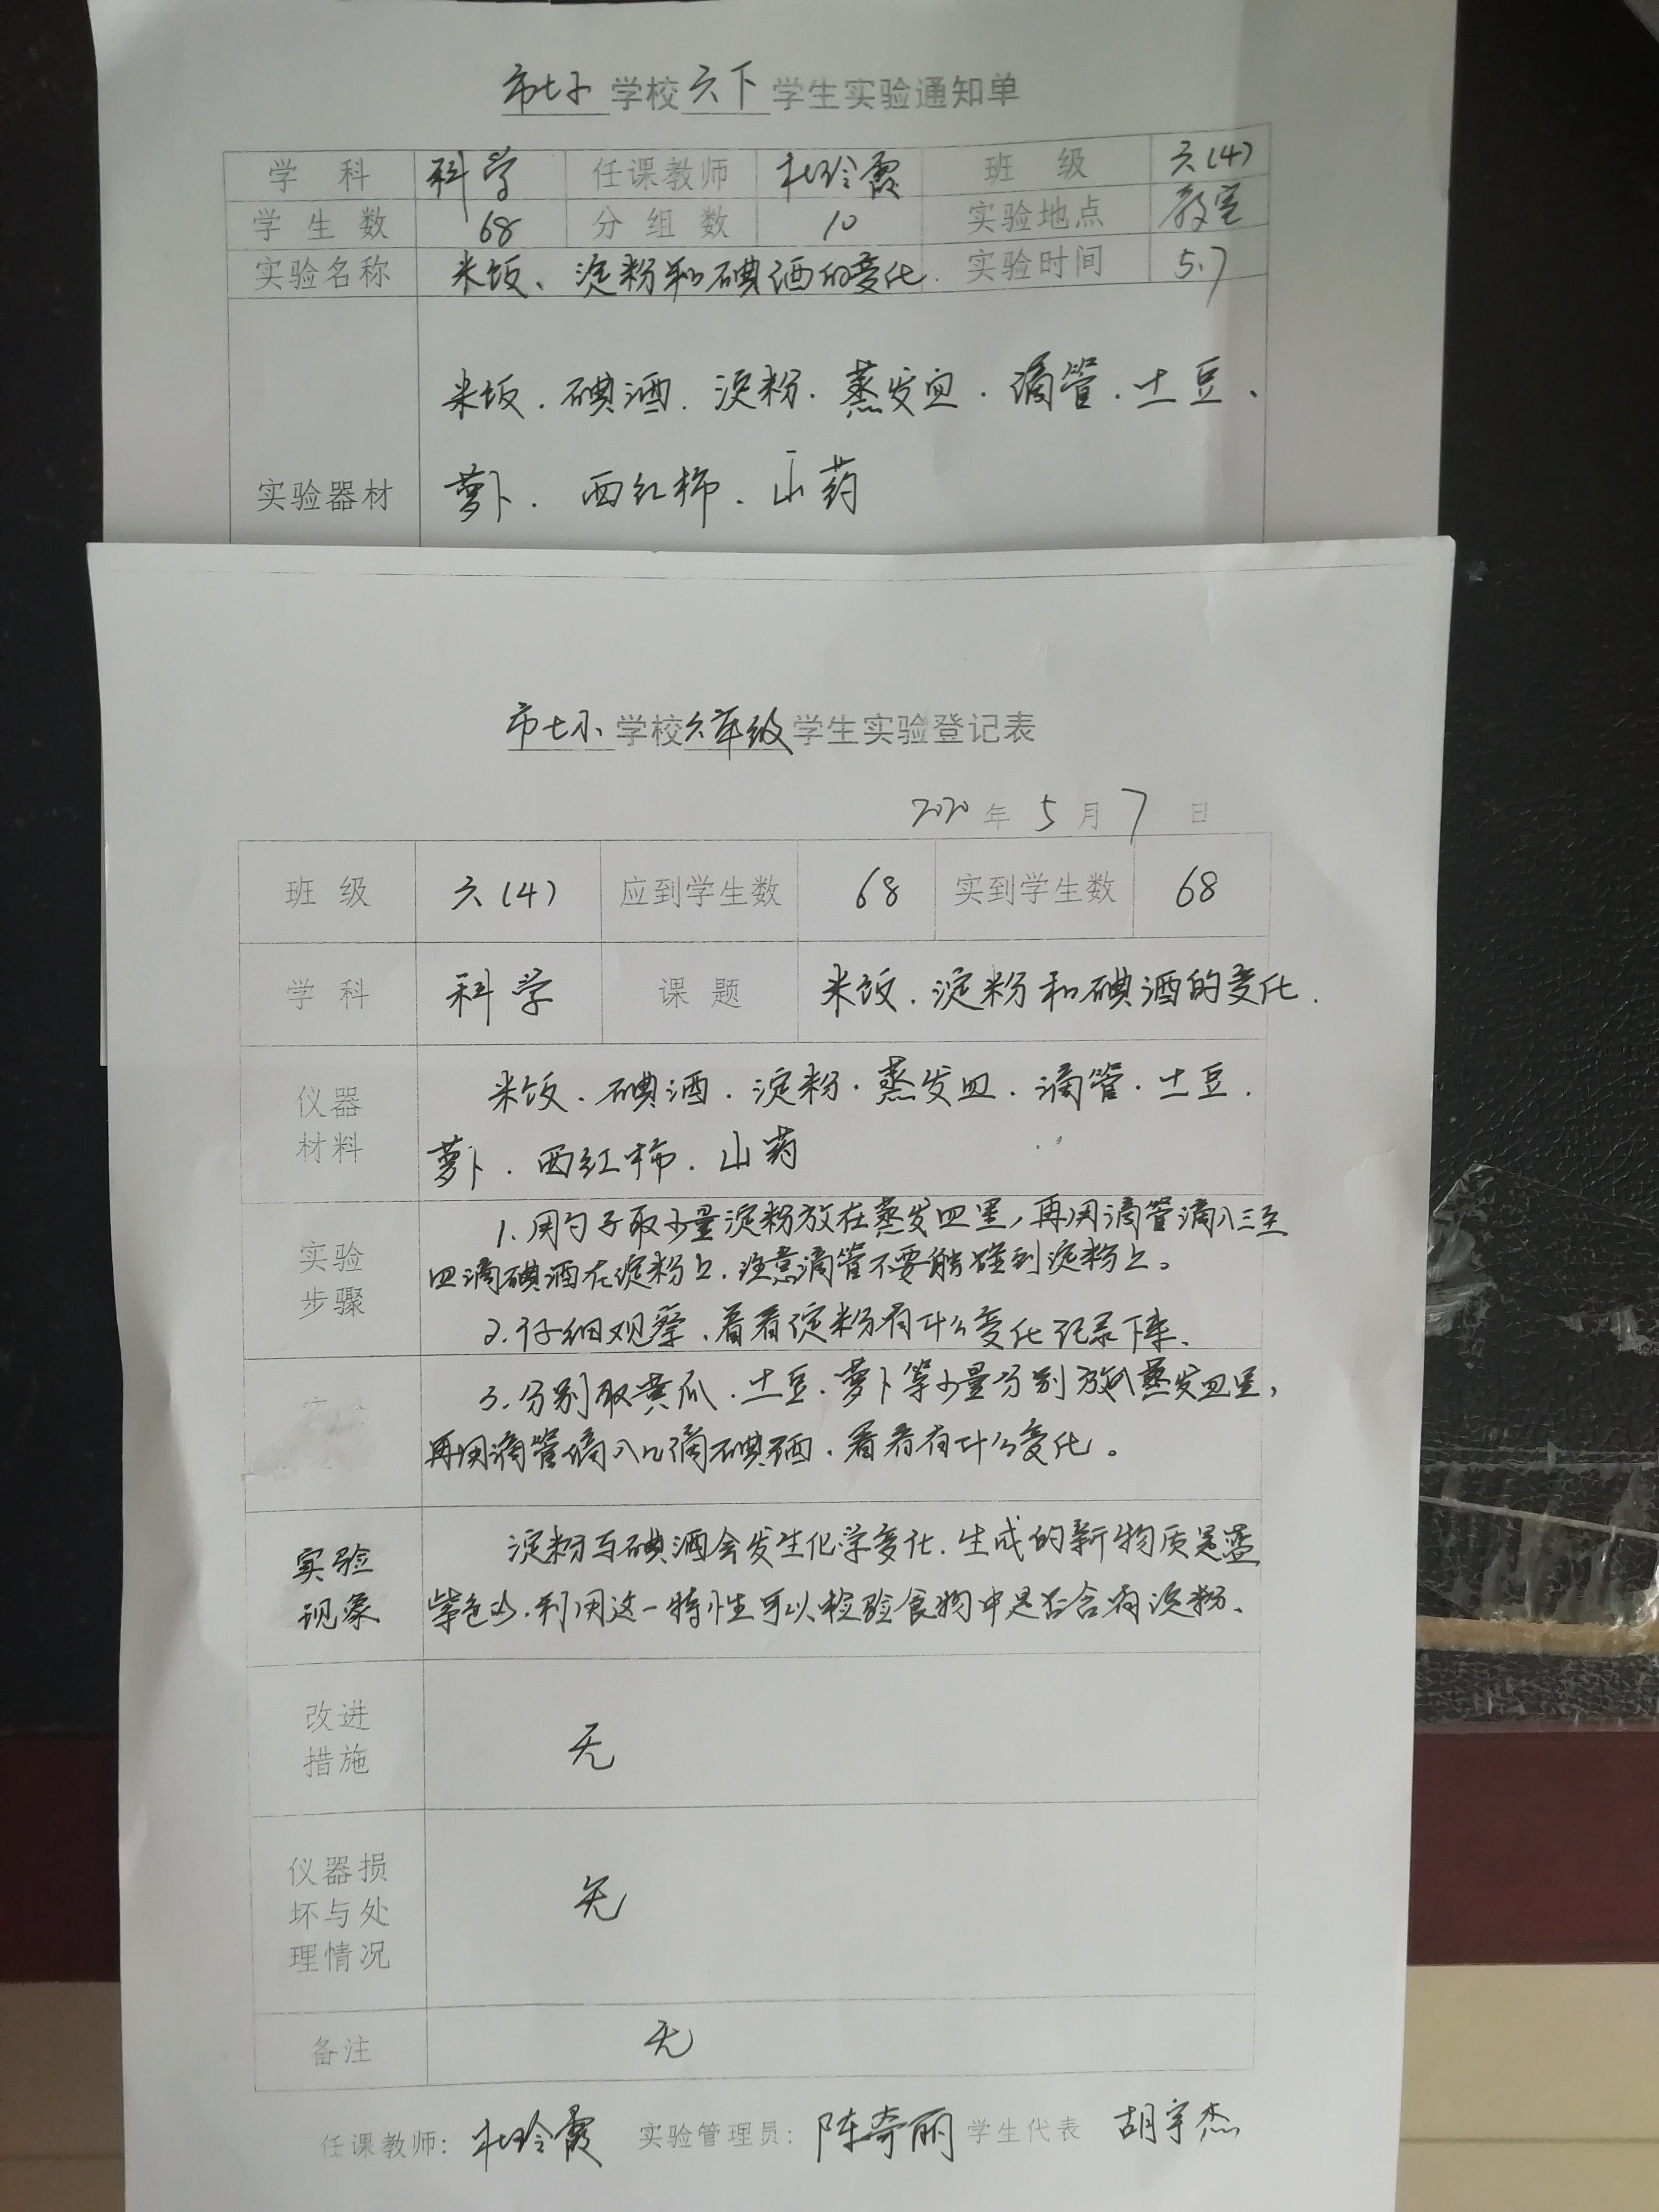 市七小 学校 六下 学生实验通知单
学 科 科学 任课教师 杜玲霞 班 级 六(4)
学 生 数 68 分 组 数 10 实验地点 教室
实验名称 米饭、淀粉和碘酒的变化. 实验时间 5.7
米饭.碘酒.淀粉.蒸发皿.滴管.土豆、
实验器材 萝卜.西红柿.山药
市七小 学校 六年级 学生实验登记表
2020 年 5 月 7 日
班 级 六(4) 应到学生数 68 实到学生数 68
学 科 科学 课 题 米饭.淀粉和碘酒的变化.
仪器 米饭.碘酒.淀粉.蒸发皿.滴管.土豆.
材料 萝卜.西红柿.山药
1.用勺子取少量淀粉放在蒸发皿里,再用滴管滴入三至
实验 四滴碘酒在淀粉上.注意滴管不要触碰到淀粉上。
步骤 2.仔细观察、看看淀粉有什么变化记录下来、
3.分别取黄瓜.土豆.萝卜等少量分别放入蒸发皿里,
再用滴管滴入几滴碘酒.看看有什么变化。
实验 淀粉与碘酒会发生化学变化.生成的新物质是蓝
现象 紫色的.利用这一特性可以检验食物中是否含有淀粉、
改进
措施 无
仪器损
坏与处 无
理情况
备注 无
任课教师: 杜玲霞 实验管理员: 陈奇丽 学生代表 胡宇杰